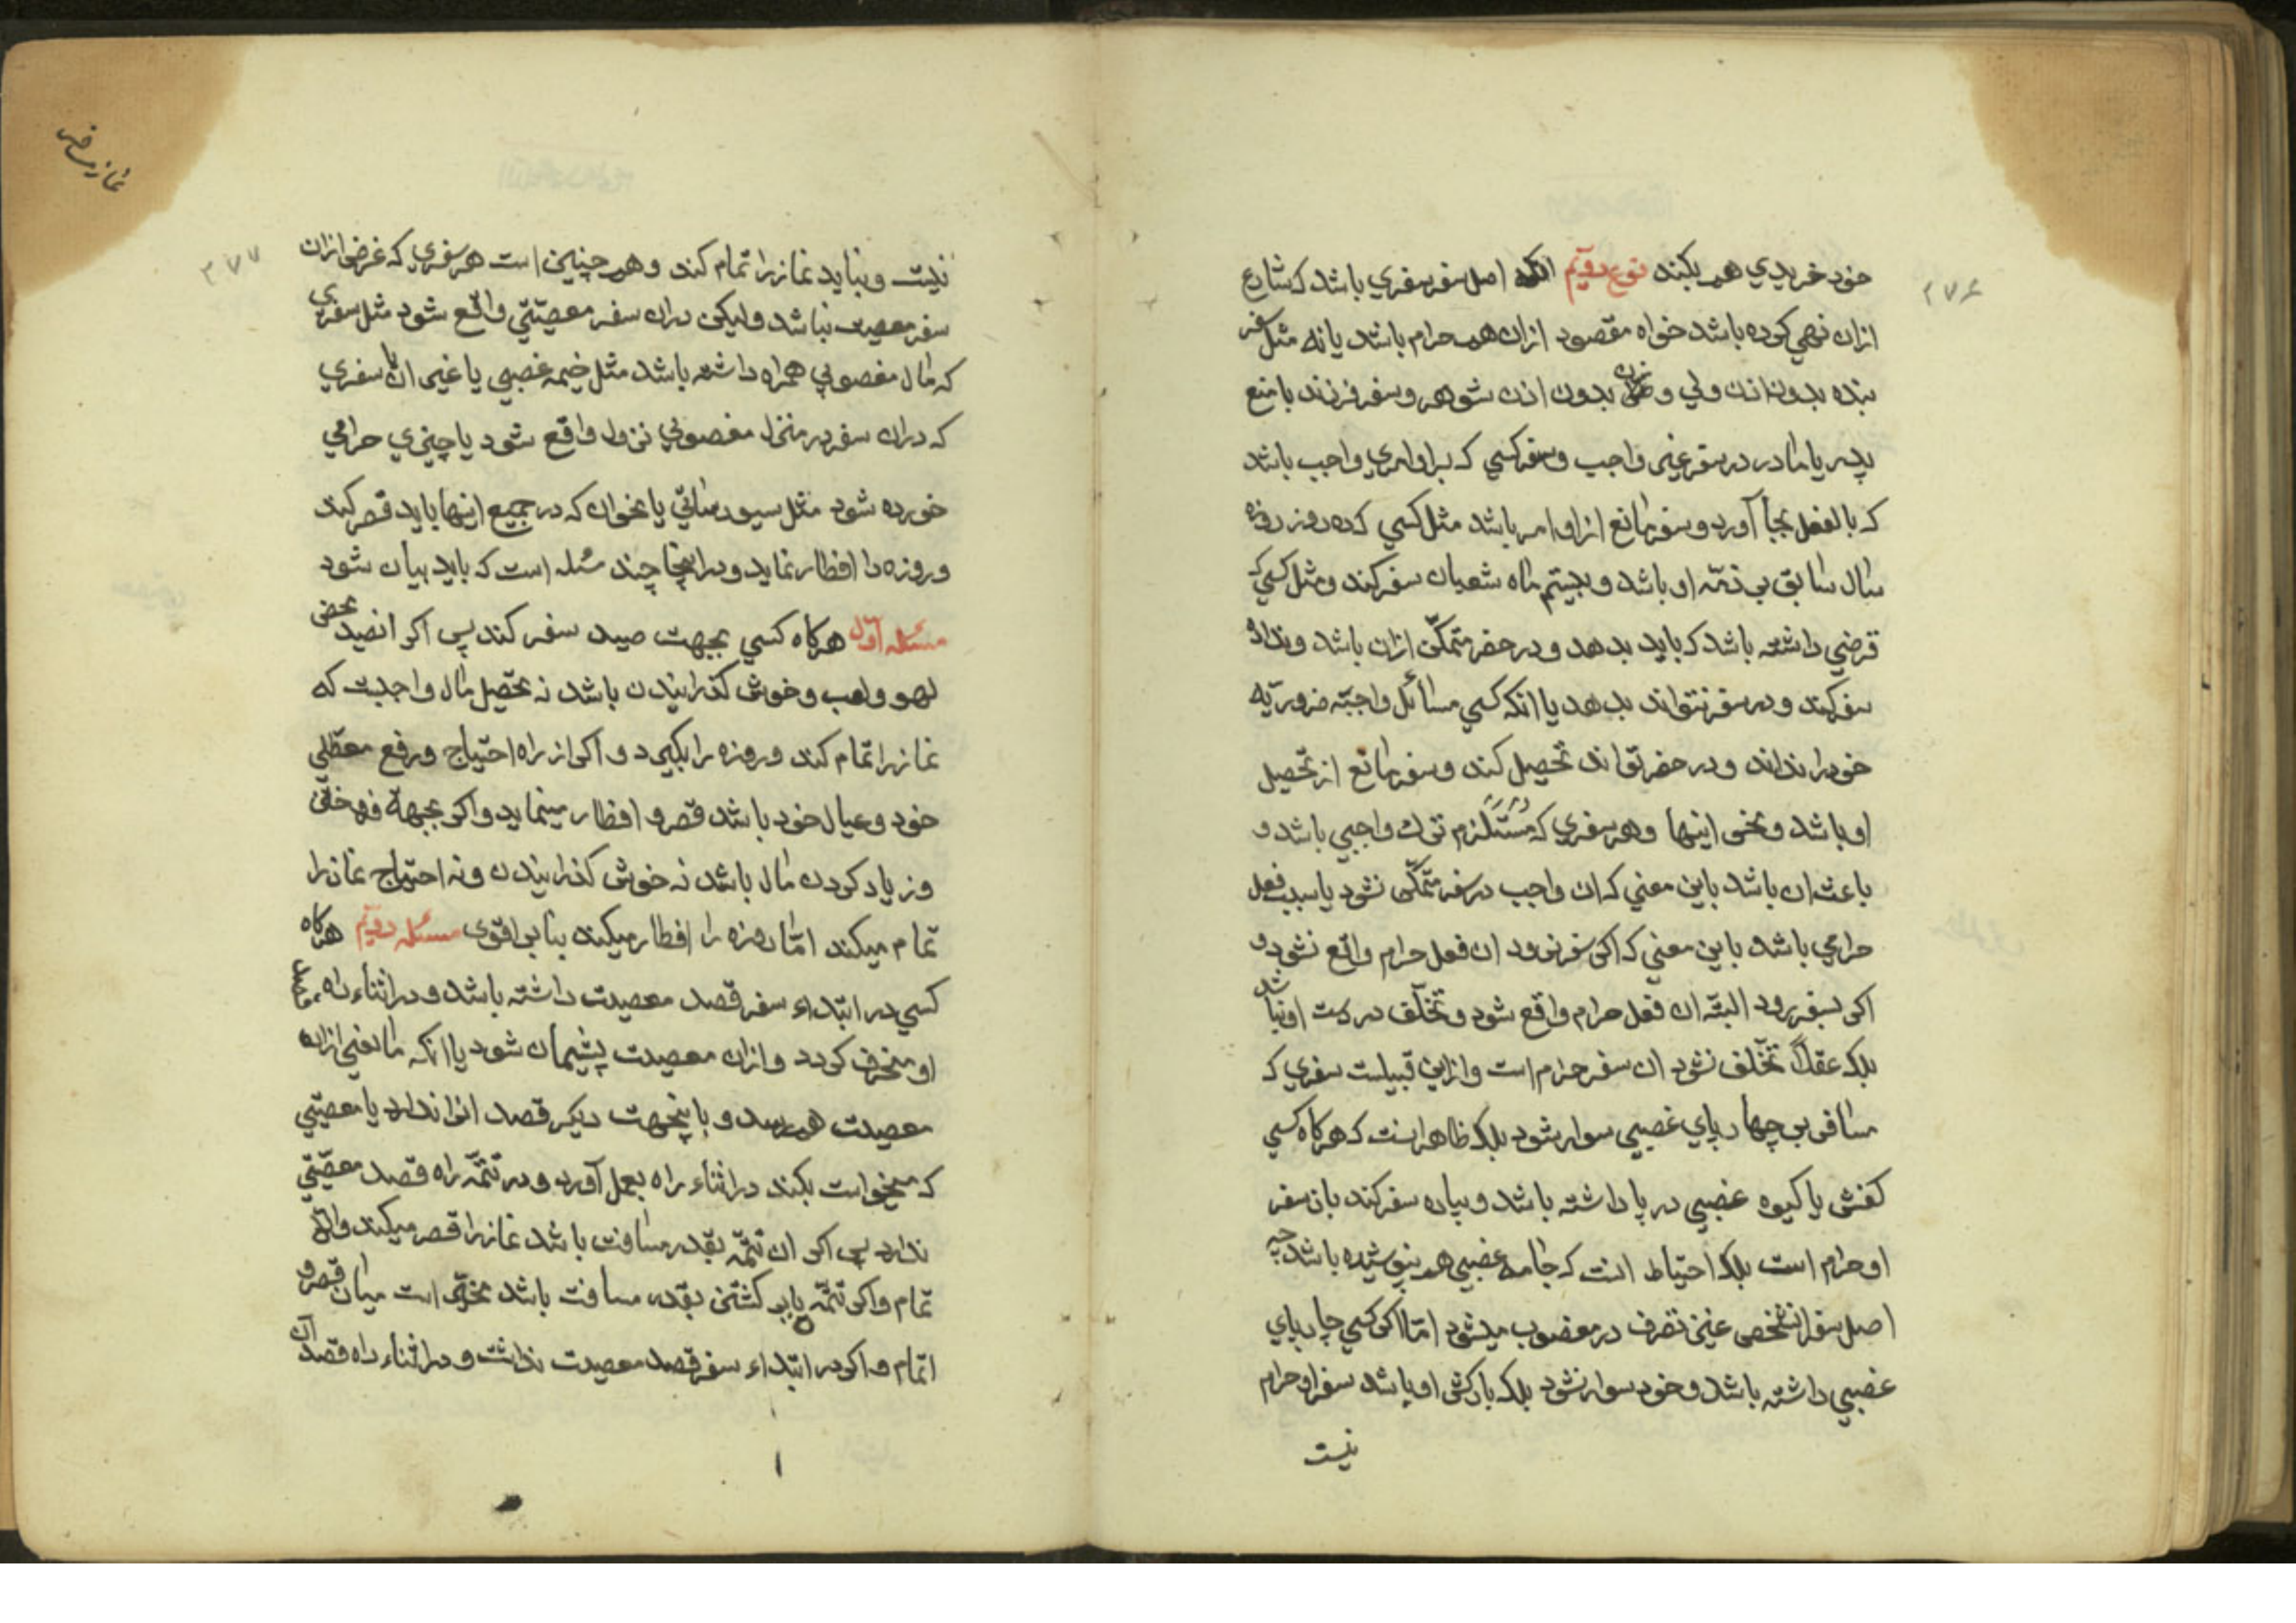 ۲۷۶
خود خریدي هم بکند نوع دویّم انکه اصل سفر سفري باشد که شارع
ازان نهي کرده باشد خواه مقصود ازان هم حرام باشد یا نه مثل سفر
بنده بدون اذن ولي و زن بدون اذن شوهر و سفر فرزند با منع
پدر یا مادر در سفر غیر واجب و سفر کسي که بر او امري واجب باشد
که بالفعل بجا آورد و سفر مانع از او امر باشد مثل کسي که ده روز روزه
سال سابق بر ذمّه او باشد و بیستم ماه شعبان سفر کند و مثل کسي که
قرضي داشته باشد که باید بدهد و در حضر متمکّن ازان باشد و نداد
سفر کند و در سفر نتواند بدهد یا انکه کسي مسائل واجبّه ضروریّه
خود را نداند و در حضر تواند تحصیل کند و سفر مانع از تحصیل
او باشد و نحو اینها و هر سفري که مستلزم ترك واجبي باشد و
باعث ان باشد باین معني که ان واجب در سفر متمکّن نشود یا سبب فعل
حرامي باشد باین معني که اکر سفر نرود ان فعل حرام واقع نشود و
اکر سفر برود البتّه ان فعل حرام واقع شود و تخلّف در دست او نباشد
بلکه عقلاً تخلّف نشود ان سفر حرام است و ازاین قبیلست سفري که
مسافر بر چهارپاي غصبي سوار شود بلکه ظاهر انست که هرکاه کسي
کفش یا کیوه غصبي در پا داشته باشد و پیاده سفر کند بان سفر
او حرام است بلکه احتیاط انست که جامه غصبي هم نپوشیده باشد چه
اصل سفر انشخص عین تصرف در مغصوب میشود امّا اکر کسي چارپاي
غصبي داشته باشد و خود سوار نشود بلکه بارکش او باشد سفر او حرام
نیست
نماز مسافر
۲۷۷
نیست و نباید نماز را تمام کند و همچنین است هر سفري که غرض ازان
سفر معصیت نباشد و لیکن دران سفر معصیتي واقع شود مثل سفري
که مال مغصوبي همراه داشته باشد مثل خیمه غصبي یا غیر ان یا سفري
که دران سفر در منزل مغصوبي نزول واقع شود یا چیزي حرامي
خورده شود مثل سیورساتي یا نحو ان که در جمیع اینها باید قصر کند
و روزه را افطار نماید و در اینجا چند مسئله است که باید بیان شود
مسئله اوّل هرکاه کسي بجهت صید سفر کند پس اکر انصید محض
لهو و لعب و خوش کذرانیدن باشد نه تحصیل مال واجبست که
نماز را تمام کند و روزه را بکیرد و اکر از راه احتیاج و رفع معطّلي
خود و عیال خود باشد قصر و افطار مینماید و اکر بجهة فروختن
و زیاد کردن مال باشد نه خوش کذرانیدن و نه احتیاج نماز را
تمام میکند امّا روزه را افطار میکند بنا بر اقوی مسئله دویّم هرکاه
کسي در ابتداء سفر قصد معصیت داشته باشد و در اثناء راه
او منحرف کردد و ازان معصیت پشیمان شود یا انکه مانعي ازان
معصیت هم رسد و باینجهت دیکر قصد انرا ندارد یا معصیتي
که میخواست بکند در اثناء راه بعمل آورد و در تتمّه راه قصد معصیتي
ندارد پس اکر ان تتمّه بقدر مسافت باشد نماز را قصر میکند والّا
تمام و اکر تتمّه با برکشتن بقدر مسافت باشد مخیّر است میان قصر و
اتمام و اکر در ابتداء سفر قصد معصیت نداشت و در اثناء راه قصد ان